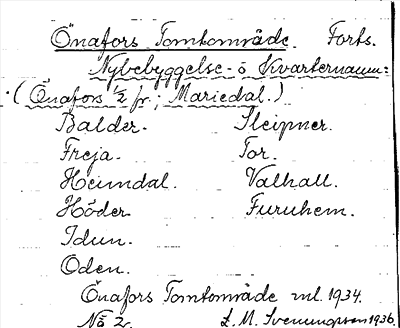 Önafors Tomtområde. Forts.
Nybebyggelse- o Kvarternamn:
(Önafors 1/2 fr; Mariedal.)
Balder. Sleipner.
Freja. Tor.
Heimdal. Valhall.
Höder Furuhem.
Idun.
Oden.
Önafors Tomtområde enl. 1934.
No 2. L. M. Svenungsson 1936.